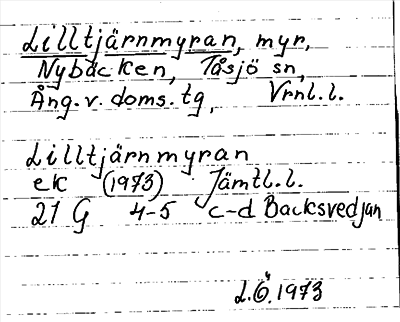 Lilltjärnmyran, myr,
Nybäcken, Tåsjö sn,
Ång. v. doms. tg, Vrnl. l.
Lilltjärnmyran
ek (1973) Jämtl. l.
21 G 4-5 c-d Backsvedjan
L.Ö. 1973